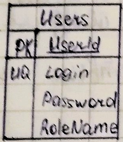 Users
PK UserId
UQ Login
Password
RoleName